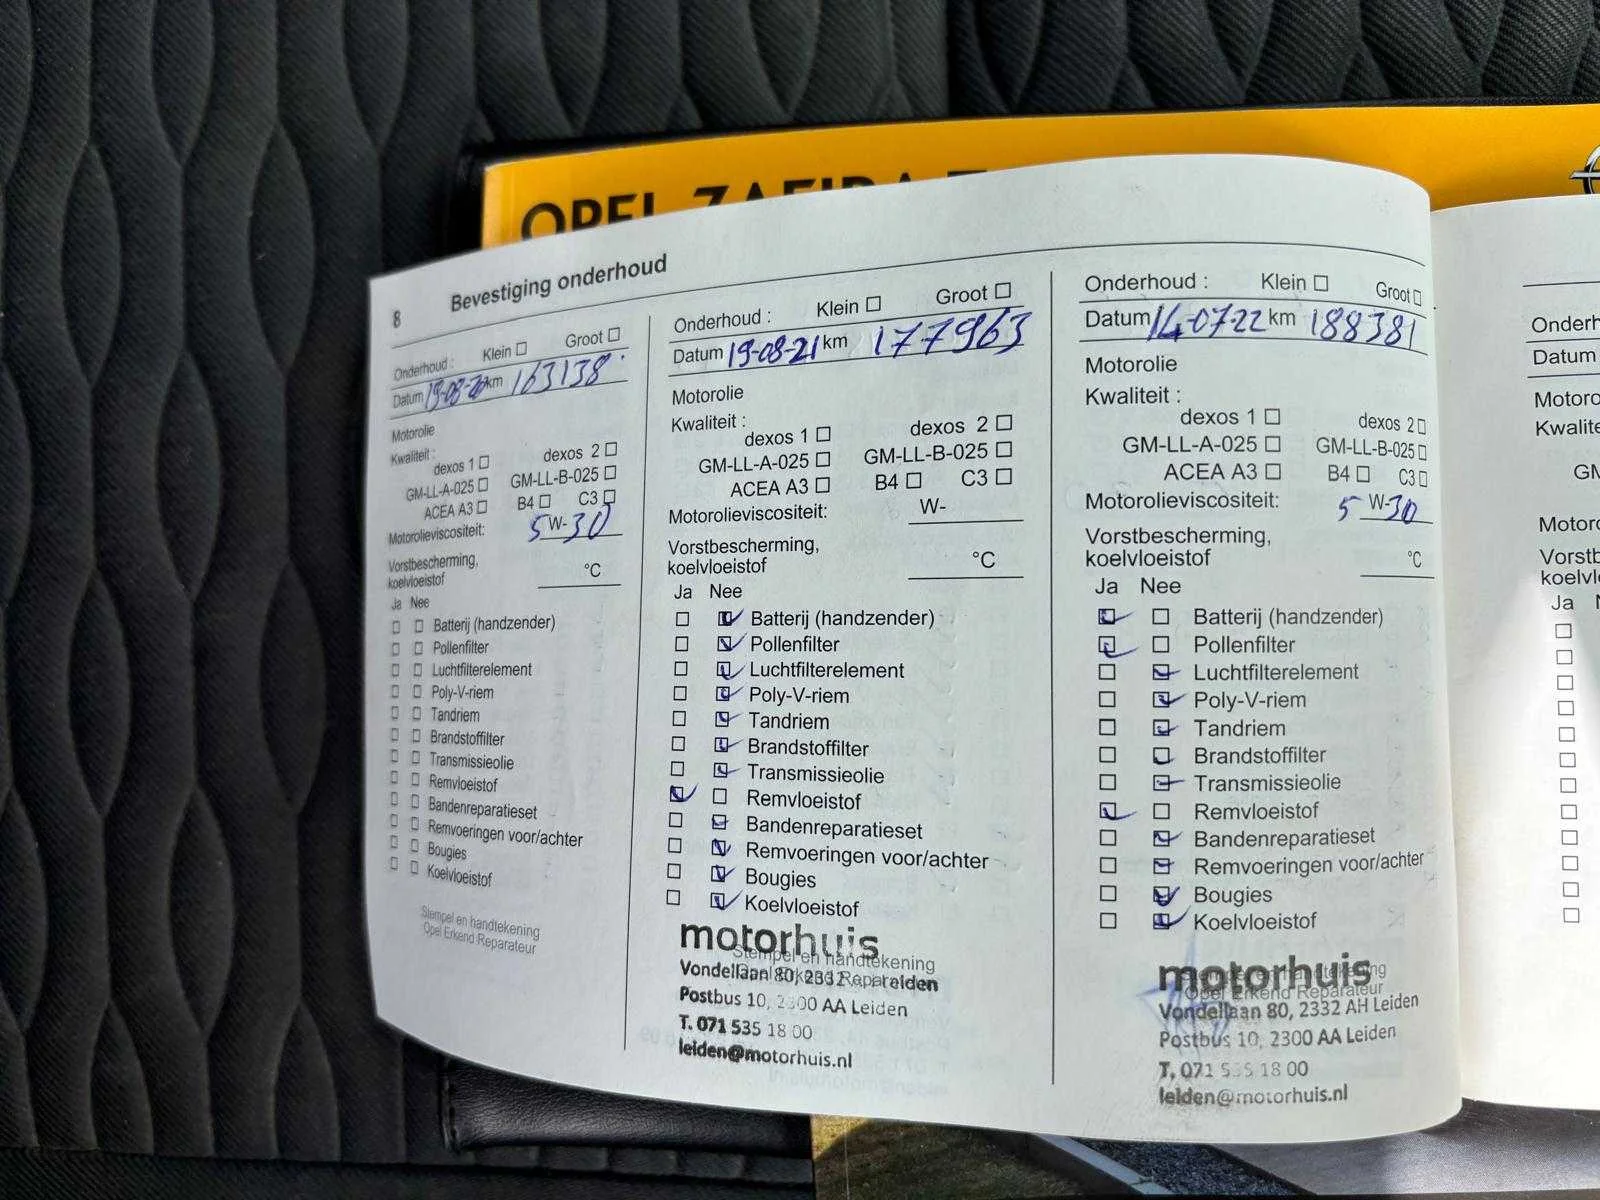 OPEL ZAFIRA
8 Bevestiging onderhoud
Onderhoud : Klein Groot
Datum 19-08-20 km 163138
Motorolie
Kwaliteit :
dexos 1 dexos 2
GM-LL-A-025 GM-LL-B-025
ACEA A3 B4 C3
Motorolieviscositeit: 5 W-30
Vorstbescherming,
koelvloeistof °C
Ja Nee
Batterij (handzender)
Pollenfilter
Luchtfilterelement
Poly-V-riem
Tandriem
Brandstoffilter
Transmissieolie
Remvloeistof
Bandenreparatieset
Remvoeringen voor/achter
Bougies
Koelvloeistof
Stempel en handtekening
Opel Erkend Reparateur
Onderhoud : Klein Groot
Datum 19-08-21 km 177963
Motorolie
Kwaliteit :
dexos 1 dexos 2
GM-LL-A-025 GM-LL-B-025
ACEA A3 B4 C3
Motorolieviscositeit: W-
Vorstbescherming,
koelvloeistof °C
Ja Nee
Batterij (handzender)
Pollenfilter
Luchtfilterelement
Poly-V-riem
Tandriem
Brandstoffilter
Transmissieolie
Remvloeistof
Bandenreparatieset
Remvoeringen voor/achter
Bougies
Koelvloeistof
motorhuis
Stempel en handtekening
Opel Erkend Reparateur
Vondellaan 80, 2332 Leiden
Postbus 10, 2300 AA Leiden
T. 071 535 18 00
leiden@motorhuis.nl
Onderhoud : Klein Groot
Datum 14-07-22 km 188381
Motorolie
Kwaliteit :
dexos 1 dexos 2
GM-LL-A-025 GM-LL-B-025
ACEA A3 B4 C3
Motorolieviscositeit: 5 W-30
Vorstbescherming,
koelvloeistof °C
Ja Nee
Batterij (handzender)
Pollenfilter
Luchtfilterelement
Poly-V-riem
Tandriem
Brandstoffilter
Transmissieolie
Remvloeistof
Bandenreparatieset
Remvoeringen voor/achter
Bougies
Koelvloeistof
motorhuis
Stempel en handtekening
Opel Erkend Reparateur
Vondellaan 80, 2332 AH Leiden
Postbus 10, 2300 AA Leiden
T. 071 535 18 00
leiden@motorhuis.nl
Onderh
Datum
Motoro
Kwalite
GM
Motoro
Vorstb
koelvl
Ja